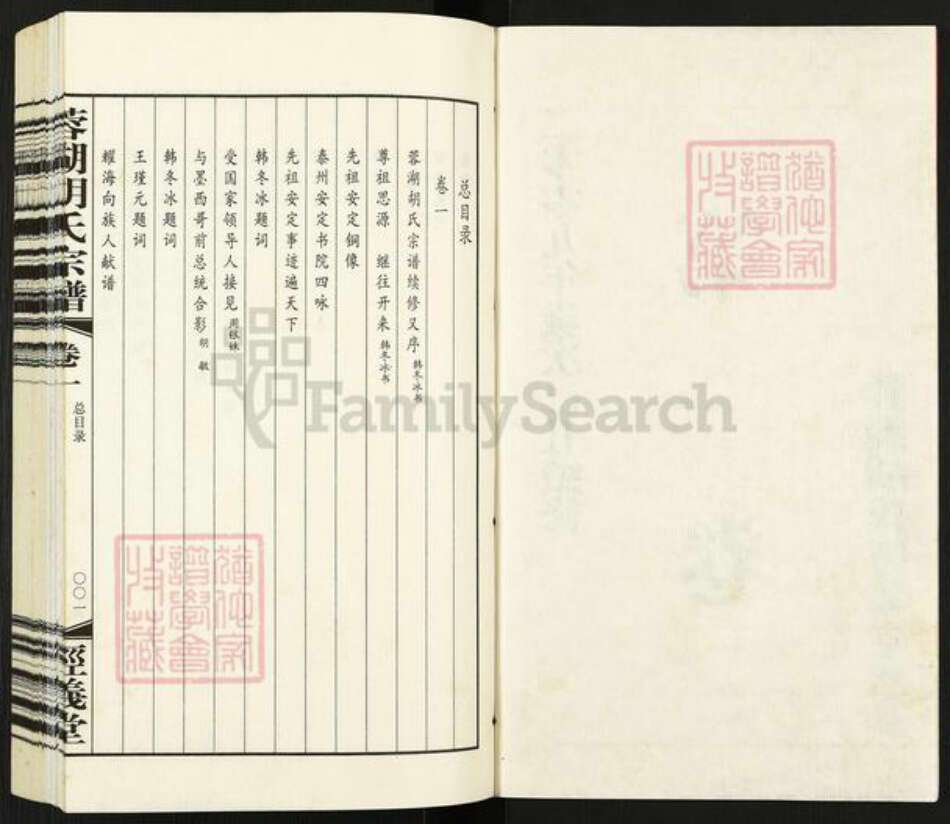 总目录
卷一
蓉湖胡氏宗谱续修又序 韩冬冰书
尊祖思源 继往开来 韩冬冰书
先祖安定铜像
泰州安定书院四咏
先祖安定事迹遍天下
韩冬冰题词
受国家领导人接见 周根妹
与墨西哥前总统合影 胡敏
韩冬冰题词
王瑾元题词
耀海向族人献谱
蓉湖胡氏宗谱
卷一
总目录
〇〇一
經義堂
FamilySearch
譜學會
收藏
譜學會
收藏